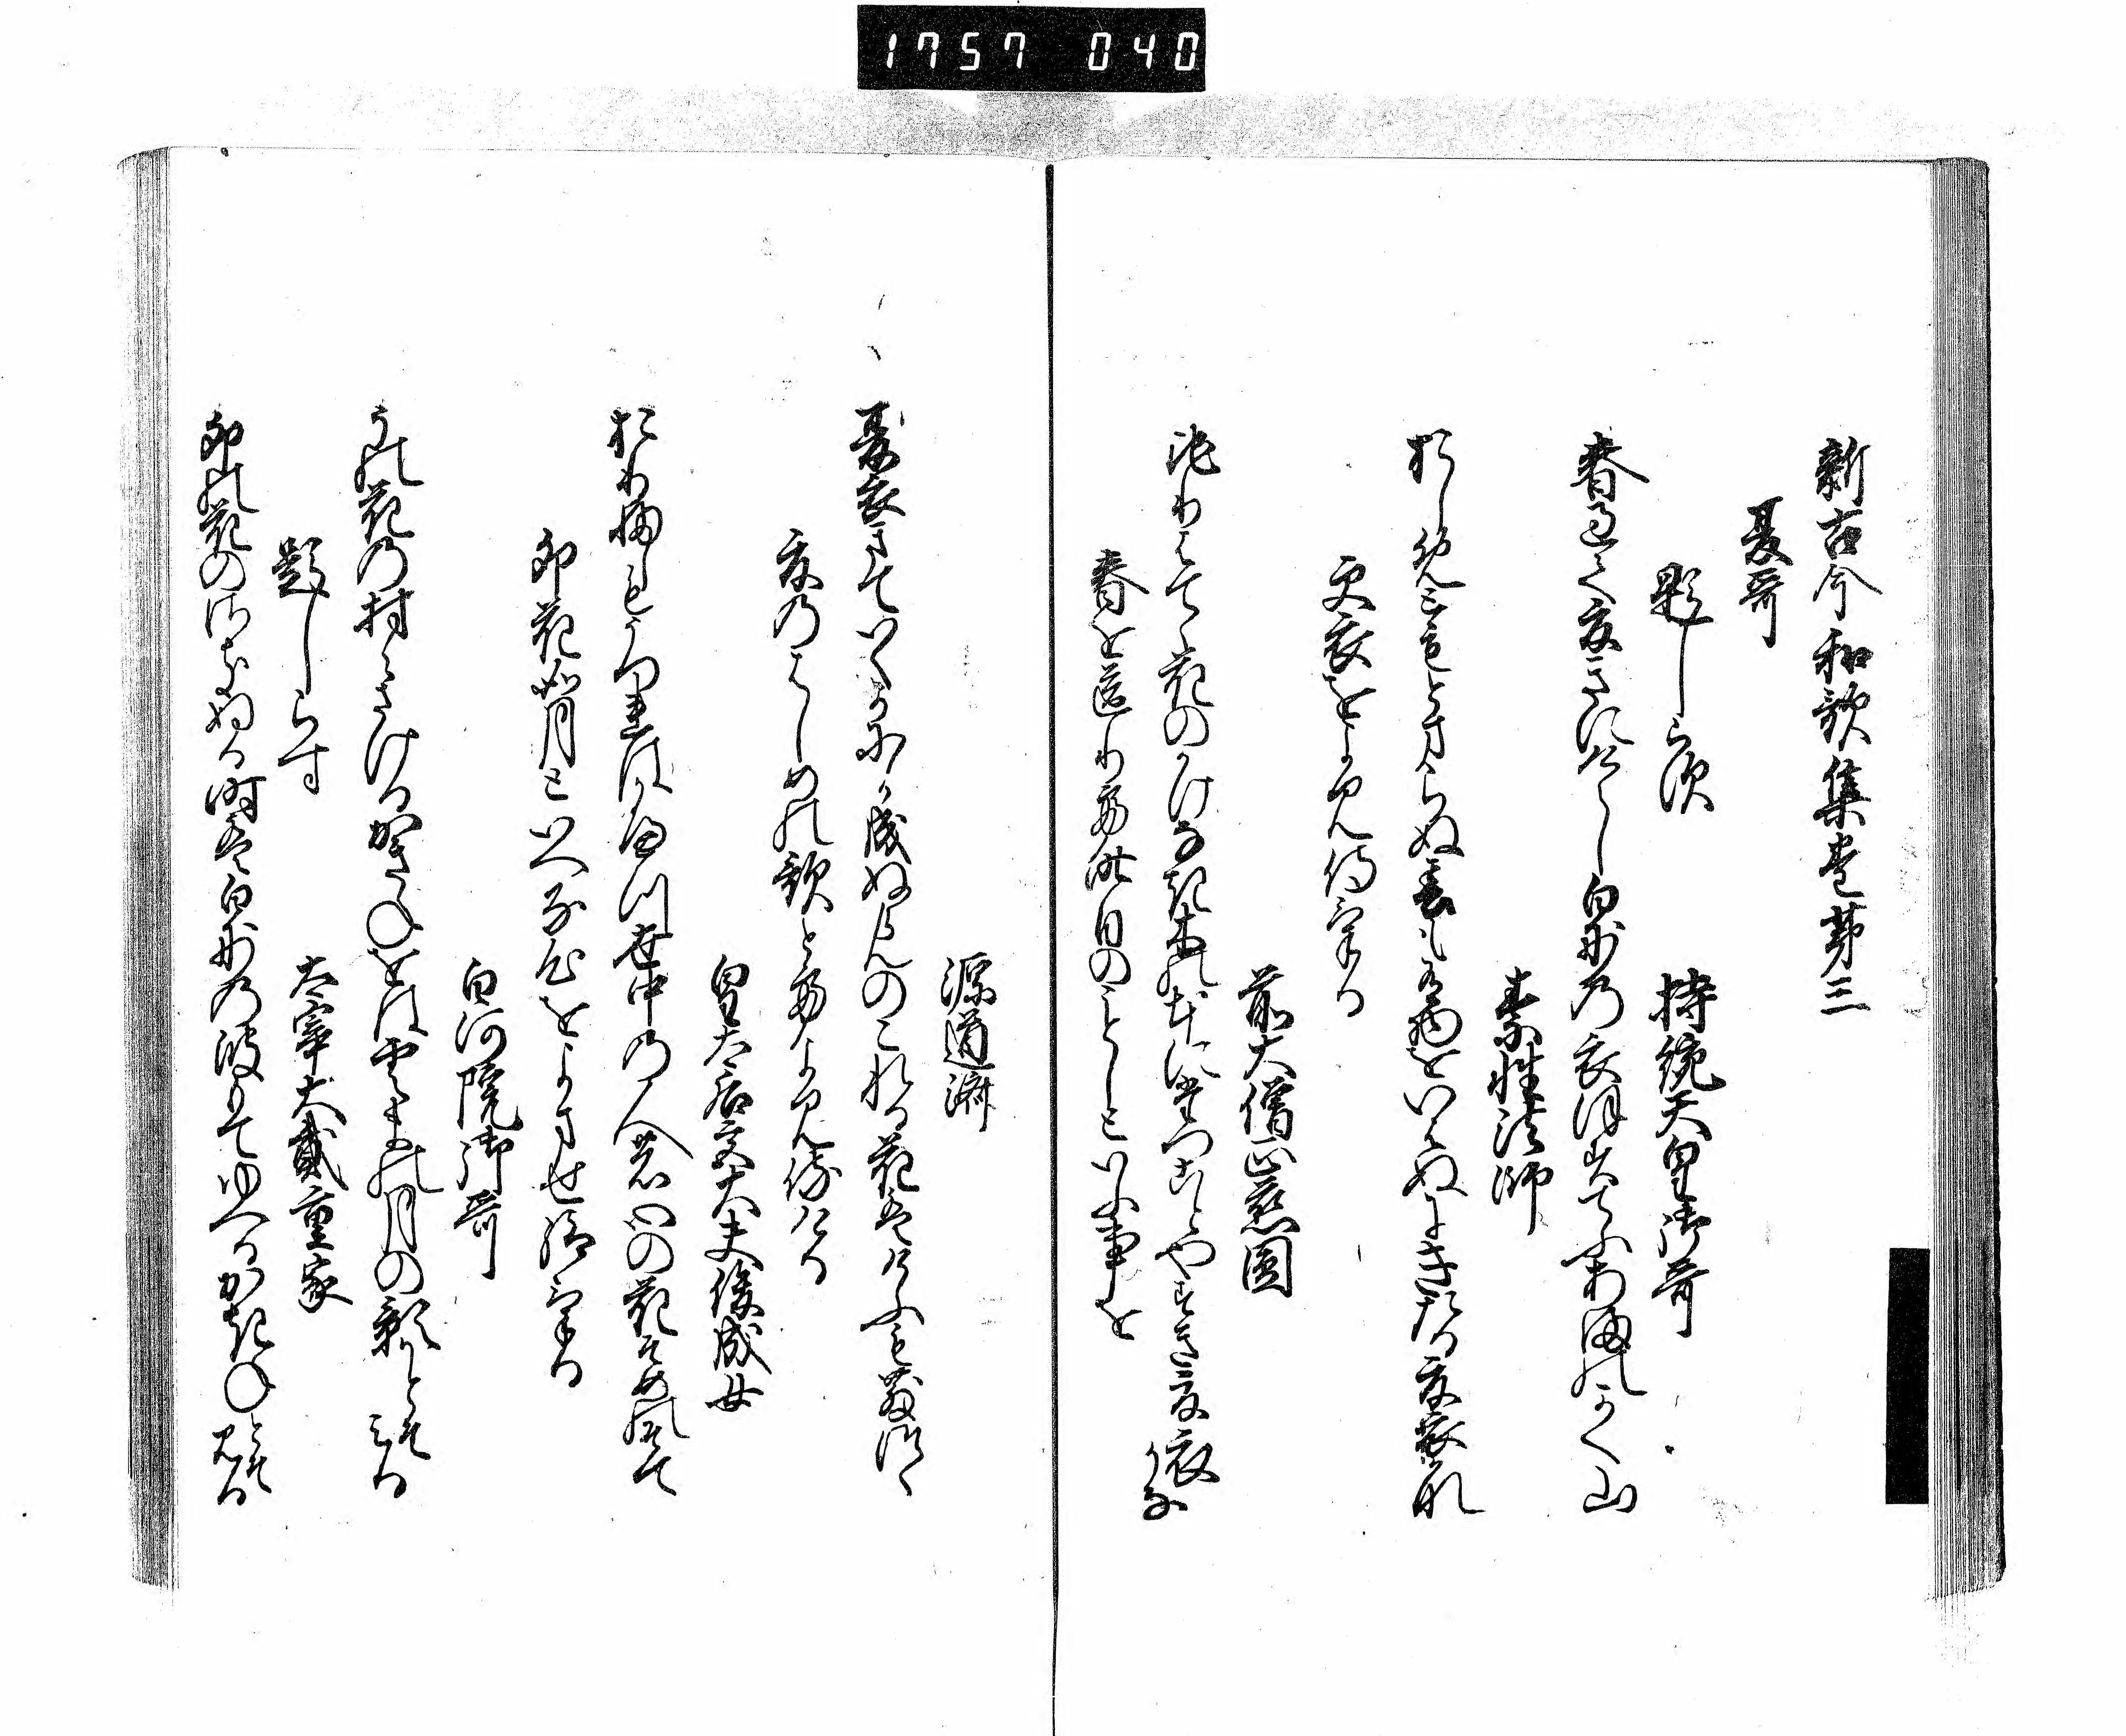 1757 040
新古今和歌集巻第三
夏哥
題しらす
持統天皇御哥
春過て夏きにけらし白妙の衣ほすてふあまのかく山
素性法師
おしめともとまらぬ春もある物をいはぬにきたる夏衣哉
更衣をよみ侍ける
前大僧正慈円
ちりはてて花のかけなき木の本にたつことやすき夏衣かな
春を送りて昨日のことしといふ事を
源道済
夏衣きていくかにか成ぬらんのこれる花はけふも散つゝ
夏のはしめの歌とてよみ侍ける
皇太后宮大夫俊成女
おりふしもうつれはかへつ世中の人の心の花そめの袖
卯花如月といへる心をよませ給ける
白河院御哥
うの花の村々さけるかきねをは雲まの月の影かとそみる
題しらす
太宰大貳重家
卯花のさきぬる時は白妙の波もてゆへるかきねとそみる